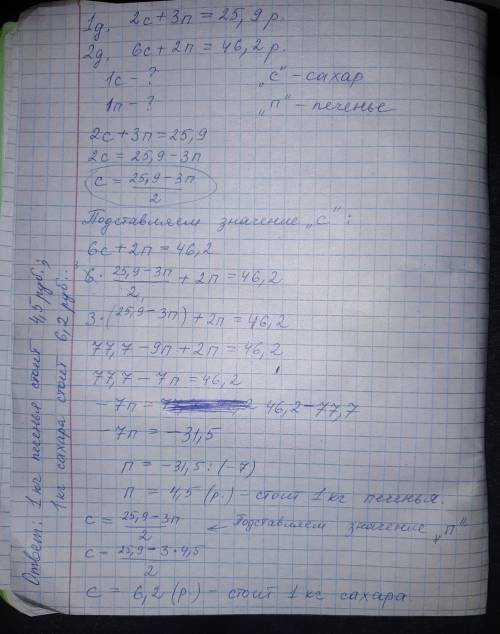 1д. 2с + 3п = 25,9 р.
2д. 6с + 2п = 46,2 р.
1с - ? „с“ - сахар
1п - ? „п“ - печенье
2с + 3п = 25,9
2с = 25,9 - 3п
с = \frac{25,9 - 3п}{2}
Подставляем значение „с“:
6с + 2п = 46,2
6 · \frac{25,9 - 3п}{2} + 2п = 46,2
3 · (25,9 - 3п) + 2п = 46,2
77,7 - 9п + 2п = 46,2
77,7 - 7п = 46,2
-7п = 46,2 - 77,7
-7п = -31,5
п = -31,5 : (-7)
п = 4,5 (р.) - стоит 1 кг печенья.
с = \frac{25,9 - 3п}{2} ← Подставляем значение „п“
с = \frac{25,9 - 3 · 4,5}{2}
с = 6,2 (р) - стоит 1 кг сахара
Ответ: 1 кг печенья стоит 4,5 руб.;
1 кг сахара стоит 6,2 руб.